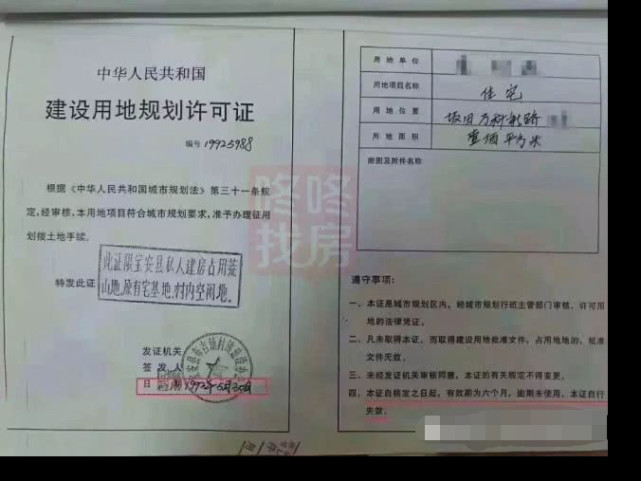 中华人民共和国
建设用地规划许可证
编号 19923988
根据《中华人民共和国城市规划法》第三十一条规
定,经审核,本用地项目符合城市规划要求,准予办理征用
划拨土地手续。
此证限宝安县私人建房占用荒
山地,原有宅基地,村内空闲地。
特发此证
发证机关
签发人
日期 1992年5月30日
用地单位
用地项目名称 住宅
用地位置 坂田
用地面积 壹佰平方米
附图及附件名称
遵守事项:
一、本证是城市规划区内,经城市规划行政主管部门审核,许可用
地的法律凭证。
二、凡未取得本证,而取得建设用地批准文件,占用地地的,批准
文件无效。
三、未经发证机关审核同意,本证的有关规定不得变更。
四、本证自核发之日起,有效期为六个月,逾期未使用,本证自行
失效。
咚咚
找房